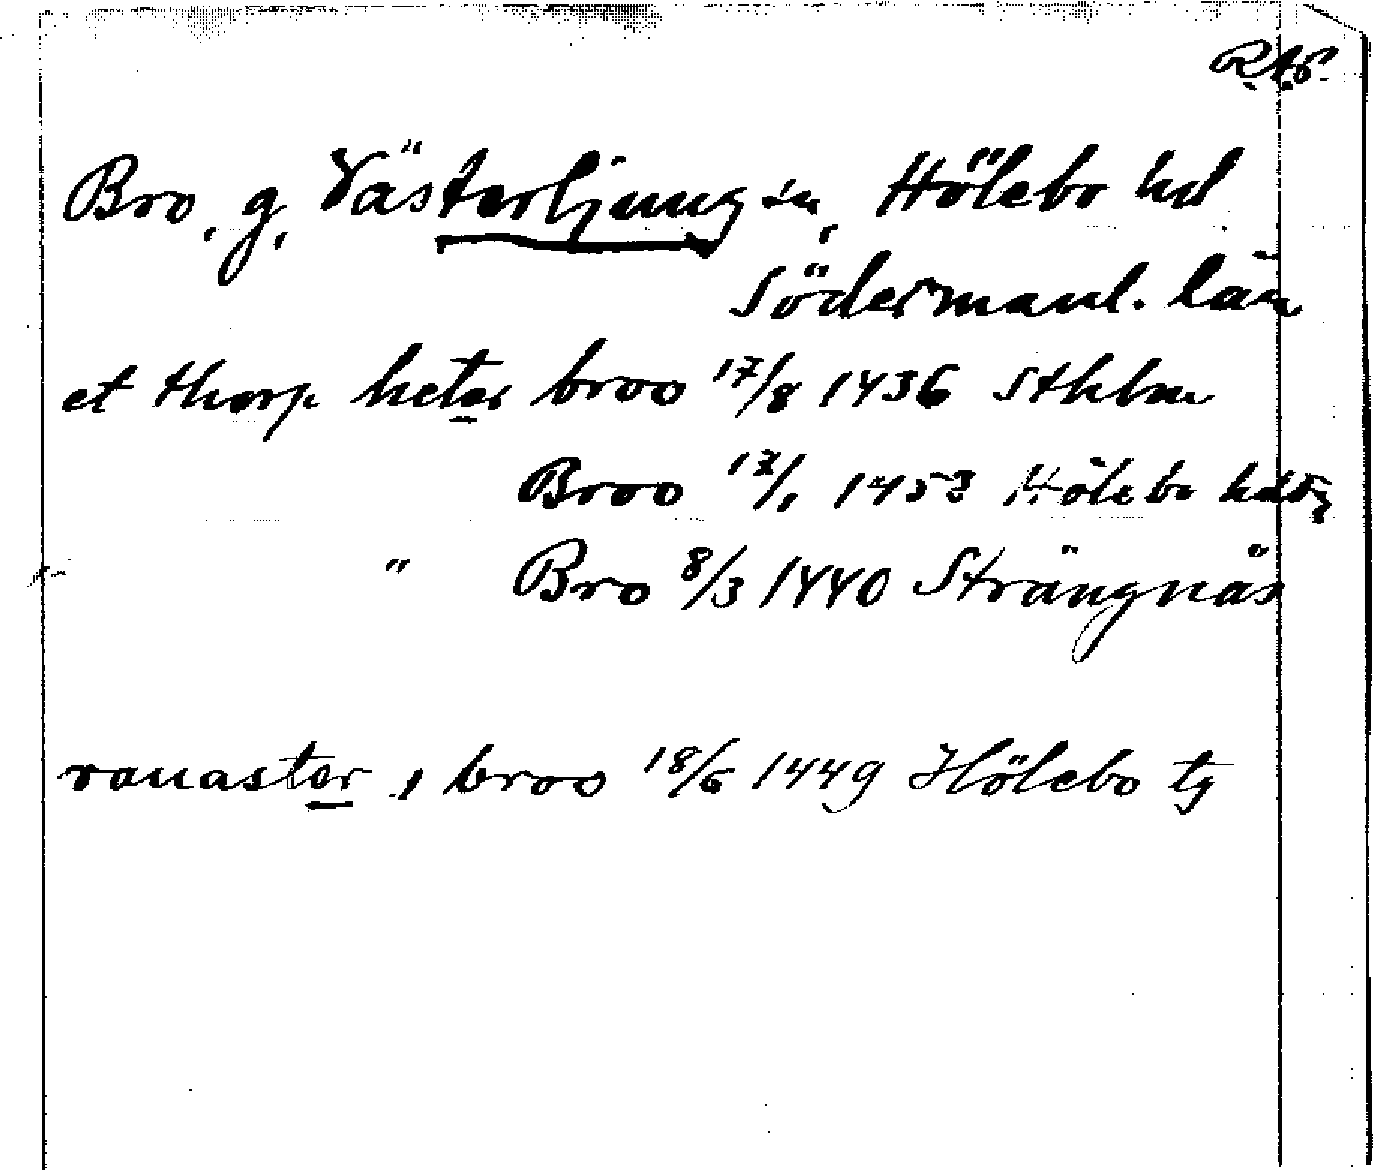 RAP
Bro, g, Västerljung sn, Hölebo hd
Södermanl. län
et thorp heter broo 17/8 1436 Sthlm
Broo 17/1 1453 Hölebo hdtg
" Bro 8/3 1440 Strängnäs
ronaster j broo 18/6 1449 Hölebo tg